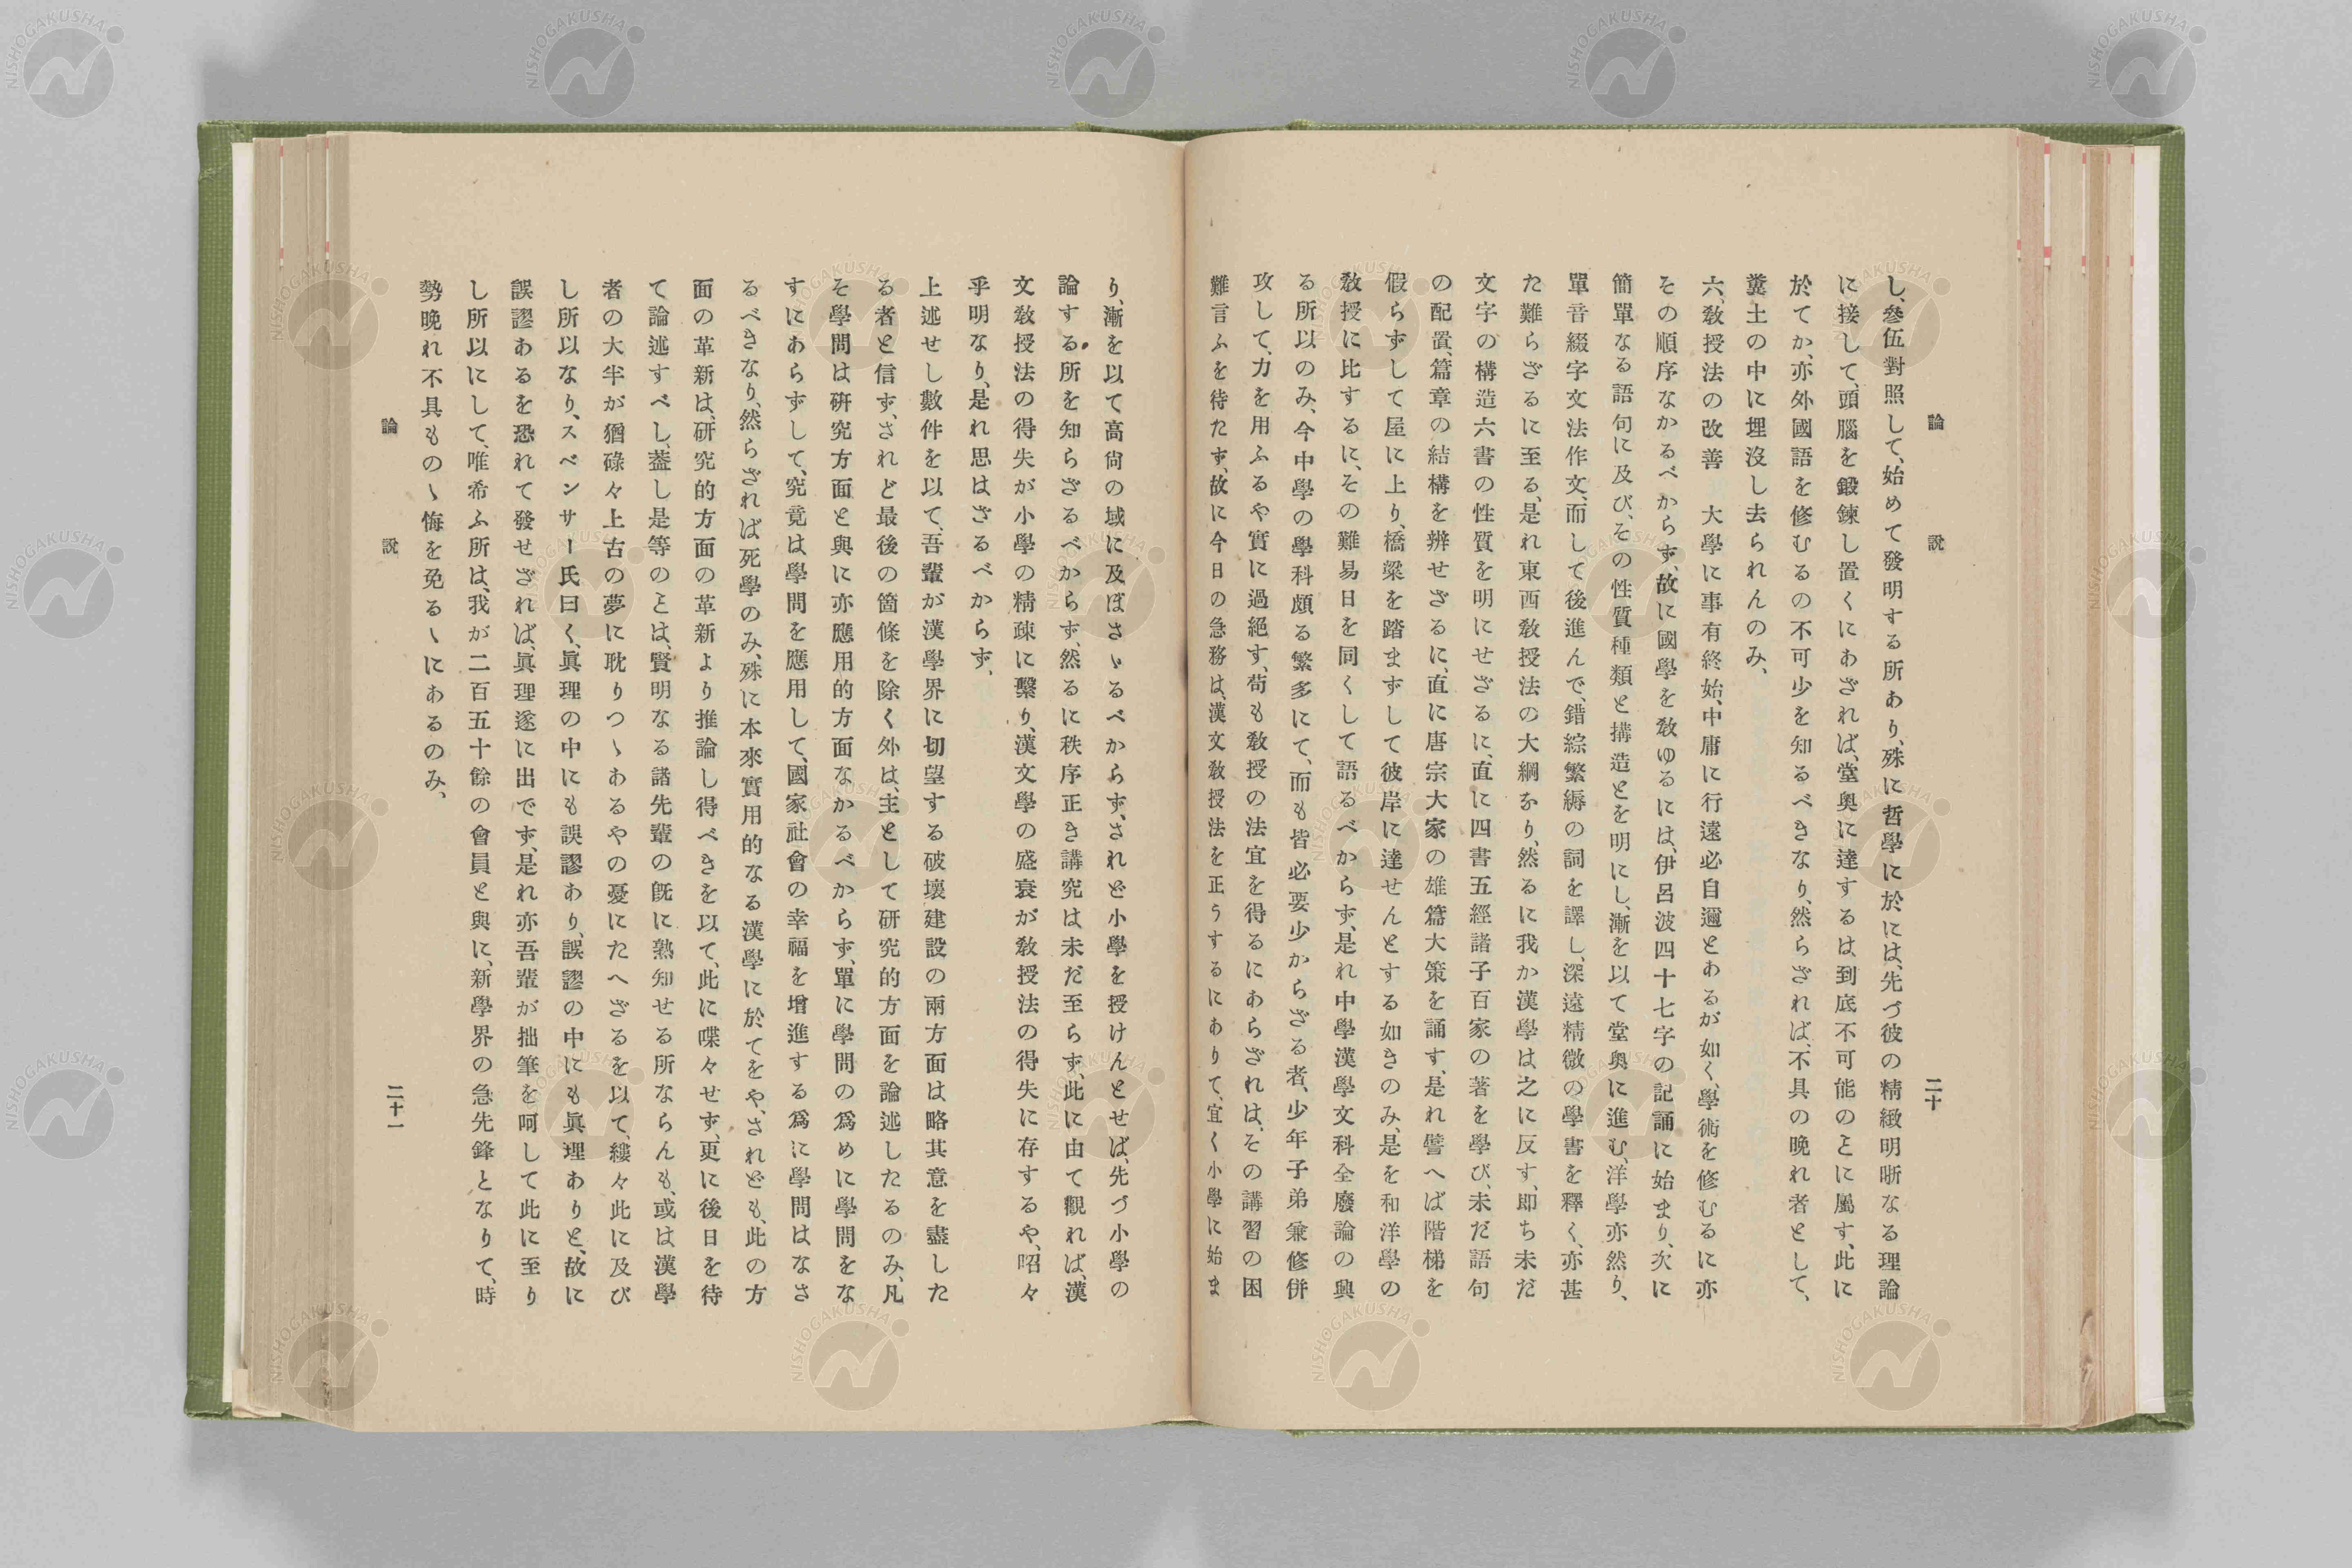 論 說
二十
し、叅伍對照して、始めて發明する所あり、殊に哲學に於には、先づ彼の精緻明晰なる理論
に接して、頭腦を鍛鍊し置くにあざれば、堂奧に達するは、到底不可能のヿに屬す、此に
於てか、亦外國語を修むるの不可少を知るべきなり、然らざれば、不具の晩れ者として、
糞土の中に埋沒し去られんのみ、
六、敎授法の改善　大學に事有終始、中庸に行遠必自邇とあるが如く、學術を修むるに亦
その順序なかるべからず、故に國學を敎ゆるには、伊呂波四十七字の記誦に始まり、次に
簡單なる語句に及び、その性質種類と搆造とを明にし、漸を以て堂奧に進む、洋學亦然り、
單音綴字文法作文、而して後進んで、錯綜繁縟の詞を譯し、深遠精微の學書を釋く、亦甚
た難らざるに至る、是れ東西敎授法の大綱をり、然るに我か漢學は之に反す、即ち未だ
文字の構造六書の性質を明にせざるに、直に四書五經諸子百家の著を學び、未だ語句
の配置、篇章の結構を辨せざるに、直に唐宗大家の雄篇大策を誦す、是れ譬へば階梯を
假らずして屋に上り、橋梁を踏まずして彼岸に達せんとする如きのみ、是を和洋學の
敎授に比するに、その難易日を同くして語るべからず、是れ中學漢學文科全廢論の興
る所以のみ、今中學の學科頗る繁多にて、而も皆必要少からざる者、少年子弟兼修併
攻して、力を用ふるや實に過絕す、苟も敎授の法宜を得るにあらざれは、その講習の困
難言ふを待たず、故に今日の急務は、漢文敎授法を正うするにありて、宜く小學に始ま
り、漸を以て高尙の域に及ぼさゞるべからず、されど小學を授けんとせば、先づ小學の
論する所を知らざるべからず、然るに秩序正き講究は未だ至らず、此に由て觀れば、漢
文敎授法の得失が小學の精疎に繫り、漢文學の盛衰が敎授法の得失に存するや、昭々
乎明なり、是れ思はざるべからず、
上述せし數件を以て、吾輩が漢學界に切望する破壞建設の兩方面は略其意を盡した
る者と信ず、されど最後の箇條を除く外は、主として硏究的方面を論述したるのみ、凡
そ學問は硏究方面と與に亦應用的方面なかるべからず、單に學問の爲めに學問をな
すにあらずして、究竟は學問を應用して、國家社會の幸福を增進する爲に學問はなさ
るべきなり、然らざれば死學のみ、殊に本來實用的なる漢學に於てをや、されども、此の方
面の革新は、硏究的方面の革新より推論し得べきを以て、此に喋々せず、更に後日を待
て論述すべし、葢し是等のヿは、賢明なる諸先輩の旣に熟知せる所ならんも、或は漢學
者の大半が猶碌々上古の夢に耽りつゝあるやの憂にたへざるを以て、縷々此に及び
し所以なり、スペンサー氏曰く、眞理の中にも誤謬あり、誤謬の中にも眞理ありと、故に
誤謬あるを恐れて發せざれば、眞理遂に出でず、是れ亦吾輩が拙筆を呵して此に至り
し所以にして、唯希ふ所は、我が二百五十餘の會員と與に、新學界の急先鋒となりて、時
勢晩れ不具ものゝ悔を免るゝにあるのみ、
論 說
二十一
NISHOGAKUSHA